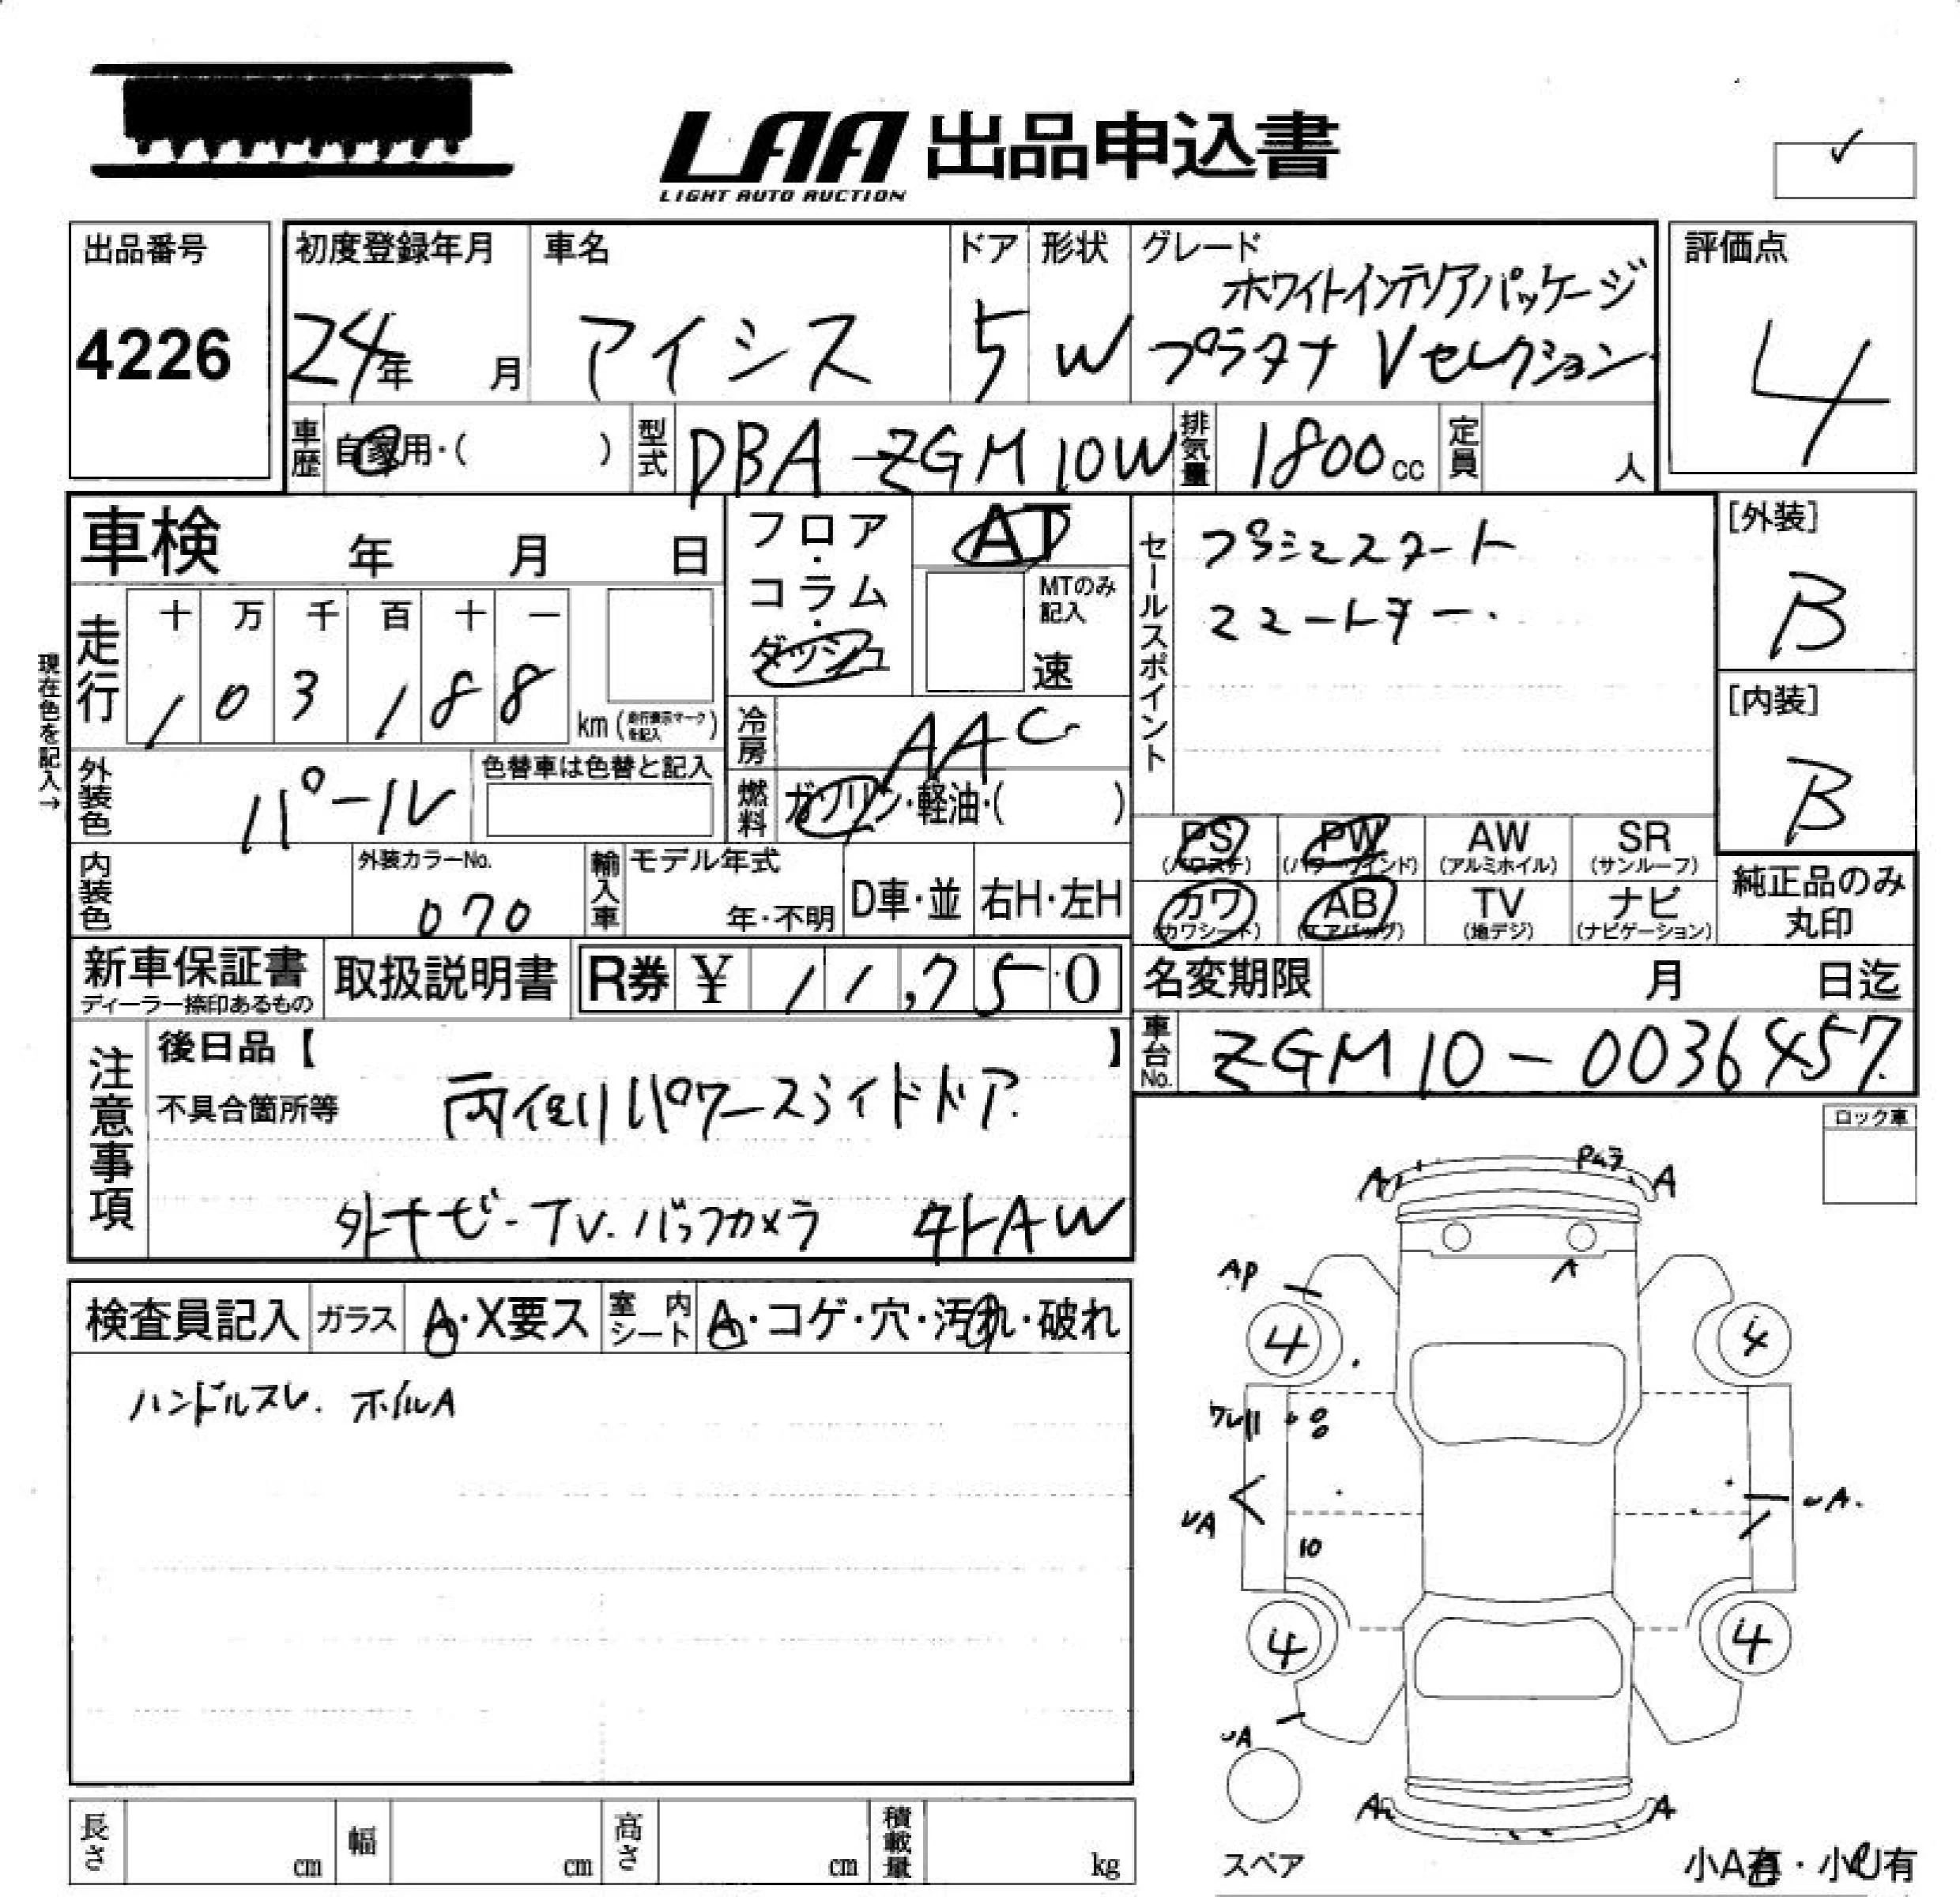 LAA 出品申込書
LIGHT AUTO AUCTION
出品番号
4226
初度登録年月
24年 月
車名
アイシス
ドア
5
形状
W
グレード
ホワイトインテリアパッケージ
プラタナ Vセレクション
評価点
4
車歴
自家用・( )
型式
DBA-ZGM10W
排気量
1800cc
定員
人
車検 年 月 日
フロア・コラム・ダッシュ
AT
MTのみ記入
速
セールスポイント
プッシュスタート
スマートキー.
[外装]
B
[内装]
B
現在色を記入→
走行
十 万 千 百 十 一
1 0 3 1 8 8
km (走行表示マークを記入)
冷房
AAC
外装色
パール
色替車は色替と記入
燃料
ガソリン・軽油・( )
PS (パワステ)
PW (パワーウインド)
AW (アルミホイル)
SR (サンルーフ)
カワ (カワシート)
AB (エアバッグ)
TV (地デジ)
ナビ (ナビゲーション)
純正品のみ丸印
内装色
外装カラーNo.
070
輸入車
モデル年式
年・不明
D車・並
右H・左H
新車保証書
ディーラー捺印あるもの
取扱説明書
R券 ¥ 11,750
名変期限 月 日迄
車台No.
ZGM10-0036457
注意事項
後日品【 】
不具合箇所等
両側パワースライドドア.
外ナビ-TV.バックカメラ 外AW
ロック車
検査員記入
ガラス
A・X要ス
室内シート
A・コゲ・穴・汚れ・破れ
ハンドルスレ. ホイルA
A A
AP
A
4 4
ワレ
UA UA.
10
4 4
UA
A A
スペア
小A有・小U有
長さ cm
幅 cm
高さ cm
積載量 kg